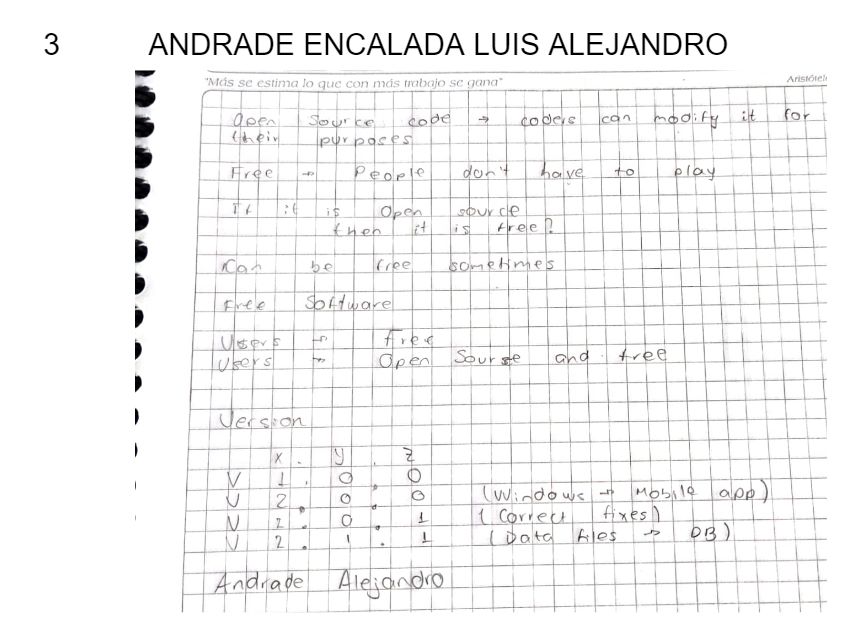 3 ANDRADE ENCALADA LUIS ALEJANDRO
"Más se estima lo que con más trabajo se gana" Aristótel
Open Source code → coders can modify it for
their purposes
Free → People don't have to play
If it is Open source
then it is free?
Can be free sometimes
Free Software
Users → Free
Users → Open Sourse and free
Version
x . y . z
V 1 . 0 . 0
V 2 . 0 . 0 (Windows → Mobile app)
V 2 . 0 . 1 (Correct fixes)
V 2 . 1 . 1 (Data files → DB)
Andrade Alejandro